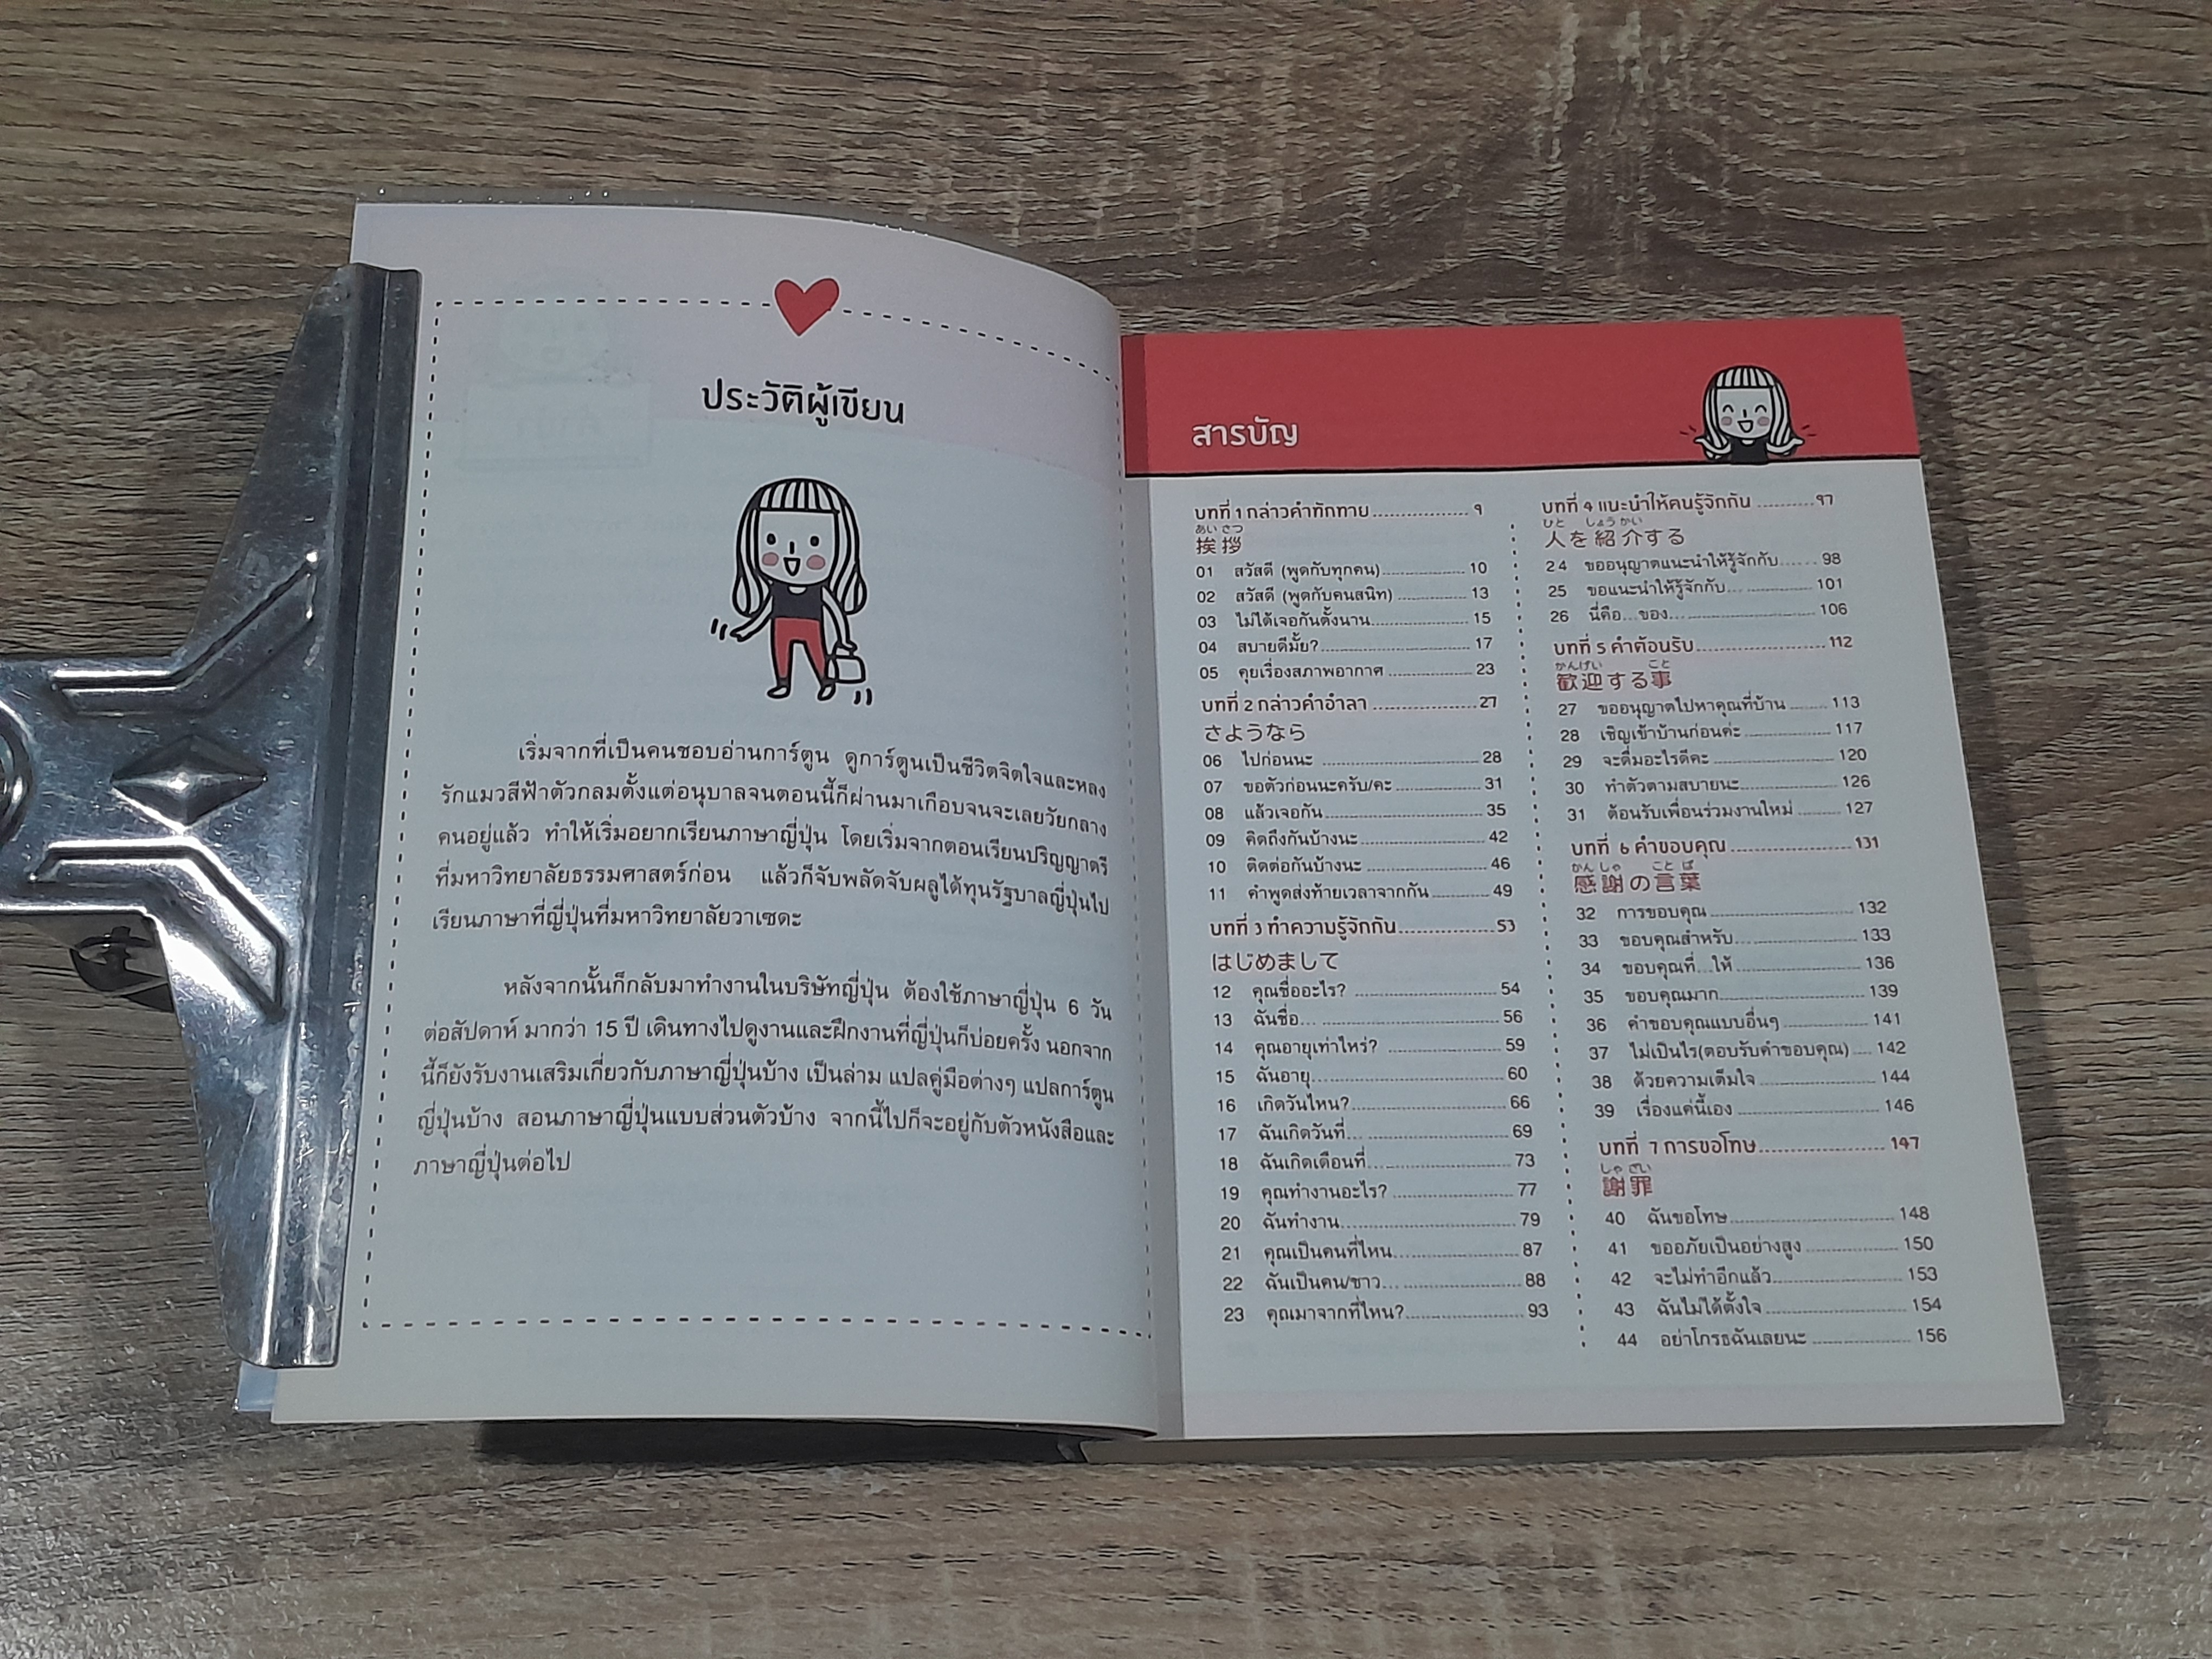 ประวัติผู้เขียน
เริ่มจากที่เป็นคนชอบอ่านการ์ตูน ดูการ์ตูนเป็นชีวิตจิตใจและหลง
รักแมวสีฟ้าตัวกลมตั้งแต่อนุบาลจนตอนนี้ก็ผ่านมาเกือบจนจะเลยวัยกลาง
คนอยู่แล้ว ทำให้เริ่มอยากเรียนภาษาญี่ปุ่น โดยเริ่มจากตอนเรียนปริญญาตรี
ที่มหาวิทยาลัยธรรมศาสตร์ก่อน แล้วก็จับพลัดจับผลูได้ทุนรัฐบาลญี่ปุ่นไป
เรียนภาษาที่ญี่ปุ่นที่มหาวิทยาลัยวาเซดะ
หลังจากนั้นก็กลับมาทำงานในบริษัทญี่ปุ่น ต้องใช้ภาษาญี่ปุ่น 6 วัน
ต่อสัปดาห์ มากว่า 15 ปี เดินทางไปดูงานและฝึกงานที่ญี่ปุ่นก็บ่อยครั้ง นอกจาก
นี้ก็ยังรับงานเสริมเกี่ยวกับภาษาญี่ปุ่นบ้าง เป็นล่าม แปลคู่มือต่างๆ แปลการ์ตูน
ญี่ปุ่นบ้าง สอนภาษาญี่ปุ่นแบบส่วนตัวบ้าง จากนี้ไปก็จะอยู่กับตัวหนังสือและ
ภาษาญี่ปุ่นต่อไป
สารบัญ
บทที่ 1 กล่าวคำทักทาย................. 9
あい さつ
挨拶
01 สวัสดี (พูดกับทุกคน)................. 10
02 สวัสดี (พูดกับคนสนิท)................. 13
03 ไม่ได้เจอกันตั้งนาน................. 15
04 สบายดีมั้ย?................. 17
05 คุยเรื่องสภาพอากาศ................. 23
บทที่ 2 กล่าวคำอำลา................. 27
さようなら
06 ไปก่อนนะ................. 28
07 ขอตัวก่อนนะครับ/คะ................. 31
08 แล้วเจอกัน................. 35
09 คิดถึงกันบ้างนะ................. 42
10 ติดต่อกันบ้างนะ................. 46
11 คำพูดส่งท้ายเวลาจากกัน................. 49
บทที่ 3 ทำความรู้จักกัน................. 53
はじめまして
12 คุณชื่ออะไร?................. 54
13 ฉันชื่อ...................... 56
14 คุณอายุเท่าไหร่?................. 59
15 ฉันอายุ...................... 60
16 เกิดวันไหน?................. 66
17 ฉันเกิดวันที่...................... 69
18 ฉันเกิดเดือนที่...................... 73
19 คุณทำงานอะไร?................. 77
20 ฉันทำงาน...................... 79
21 คุณเป็นคนที่ไหน...................... 87
22 ฉันเป็นคน/ชาว...................... 88
23 คุณมาจากที่ไหน?................. 93
บทที่ 4 แนะนำให้คนรู้จักกัน.......... 97
ひと しょうかい
人を紹介する
24 ขออนุญาตแนะนำให้รู้จักกับ...... 98
25 ขอแนะนำให้รู้จักกับ................. 101
26 นี่คือ...ของ...................... 106
บทที่ 5 คำต้อนรับ................. 112
かんげい こと
歓迎する事
27 ขออนุญาตไปหาคุณที่บ้าน........ 113
28 เชิญเข้าบ้านก่อนค่ะ................. 117
29 จะดื่มอะไรดีคะ................. 120
30 ทำตัวตามสบายนะ................. 126
31 ต้อนรับเพื่อนร่วมงานใหม่.......... 127
บทที่ 6 คำขอบคุณ................. 131
かんしゃ ことば
感謝の言葉
32 การขอบคุณ................. 132
33 ขอบคุณสำหรับ...................... 133
34 ขอบคุณที่...ให้................. 136
35 ขอบคุณมาก................. 139
36 คำขอบคุณแบบอื่นๆ................. 141
37 ไม่เป็นไร(ตอบรับคำขอบคุณ).... 142
38 ด้วยความเต็มใจ................. 144
39 เรื่องแค่นี้เอง................. 146
บทที่ 7 การขอโทษ................. 147
しゃざい
謝罪
40 ฉันขอโทษ................. 148
41 ขออภัยเป็นอย่างสูง................. 150
42 จะไม่ทำอีกแล้ว................. 153
43 ฉันไม่ได้ตั้งใจ................. 154
44 อย่าโกรธฉันเลยนะ................. 156